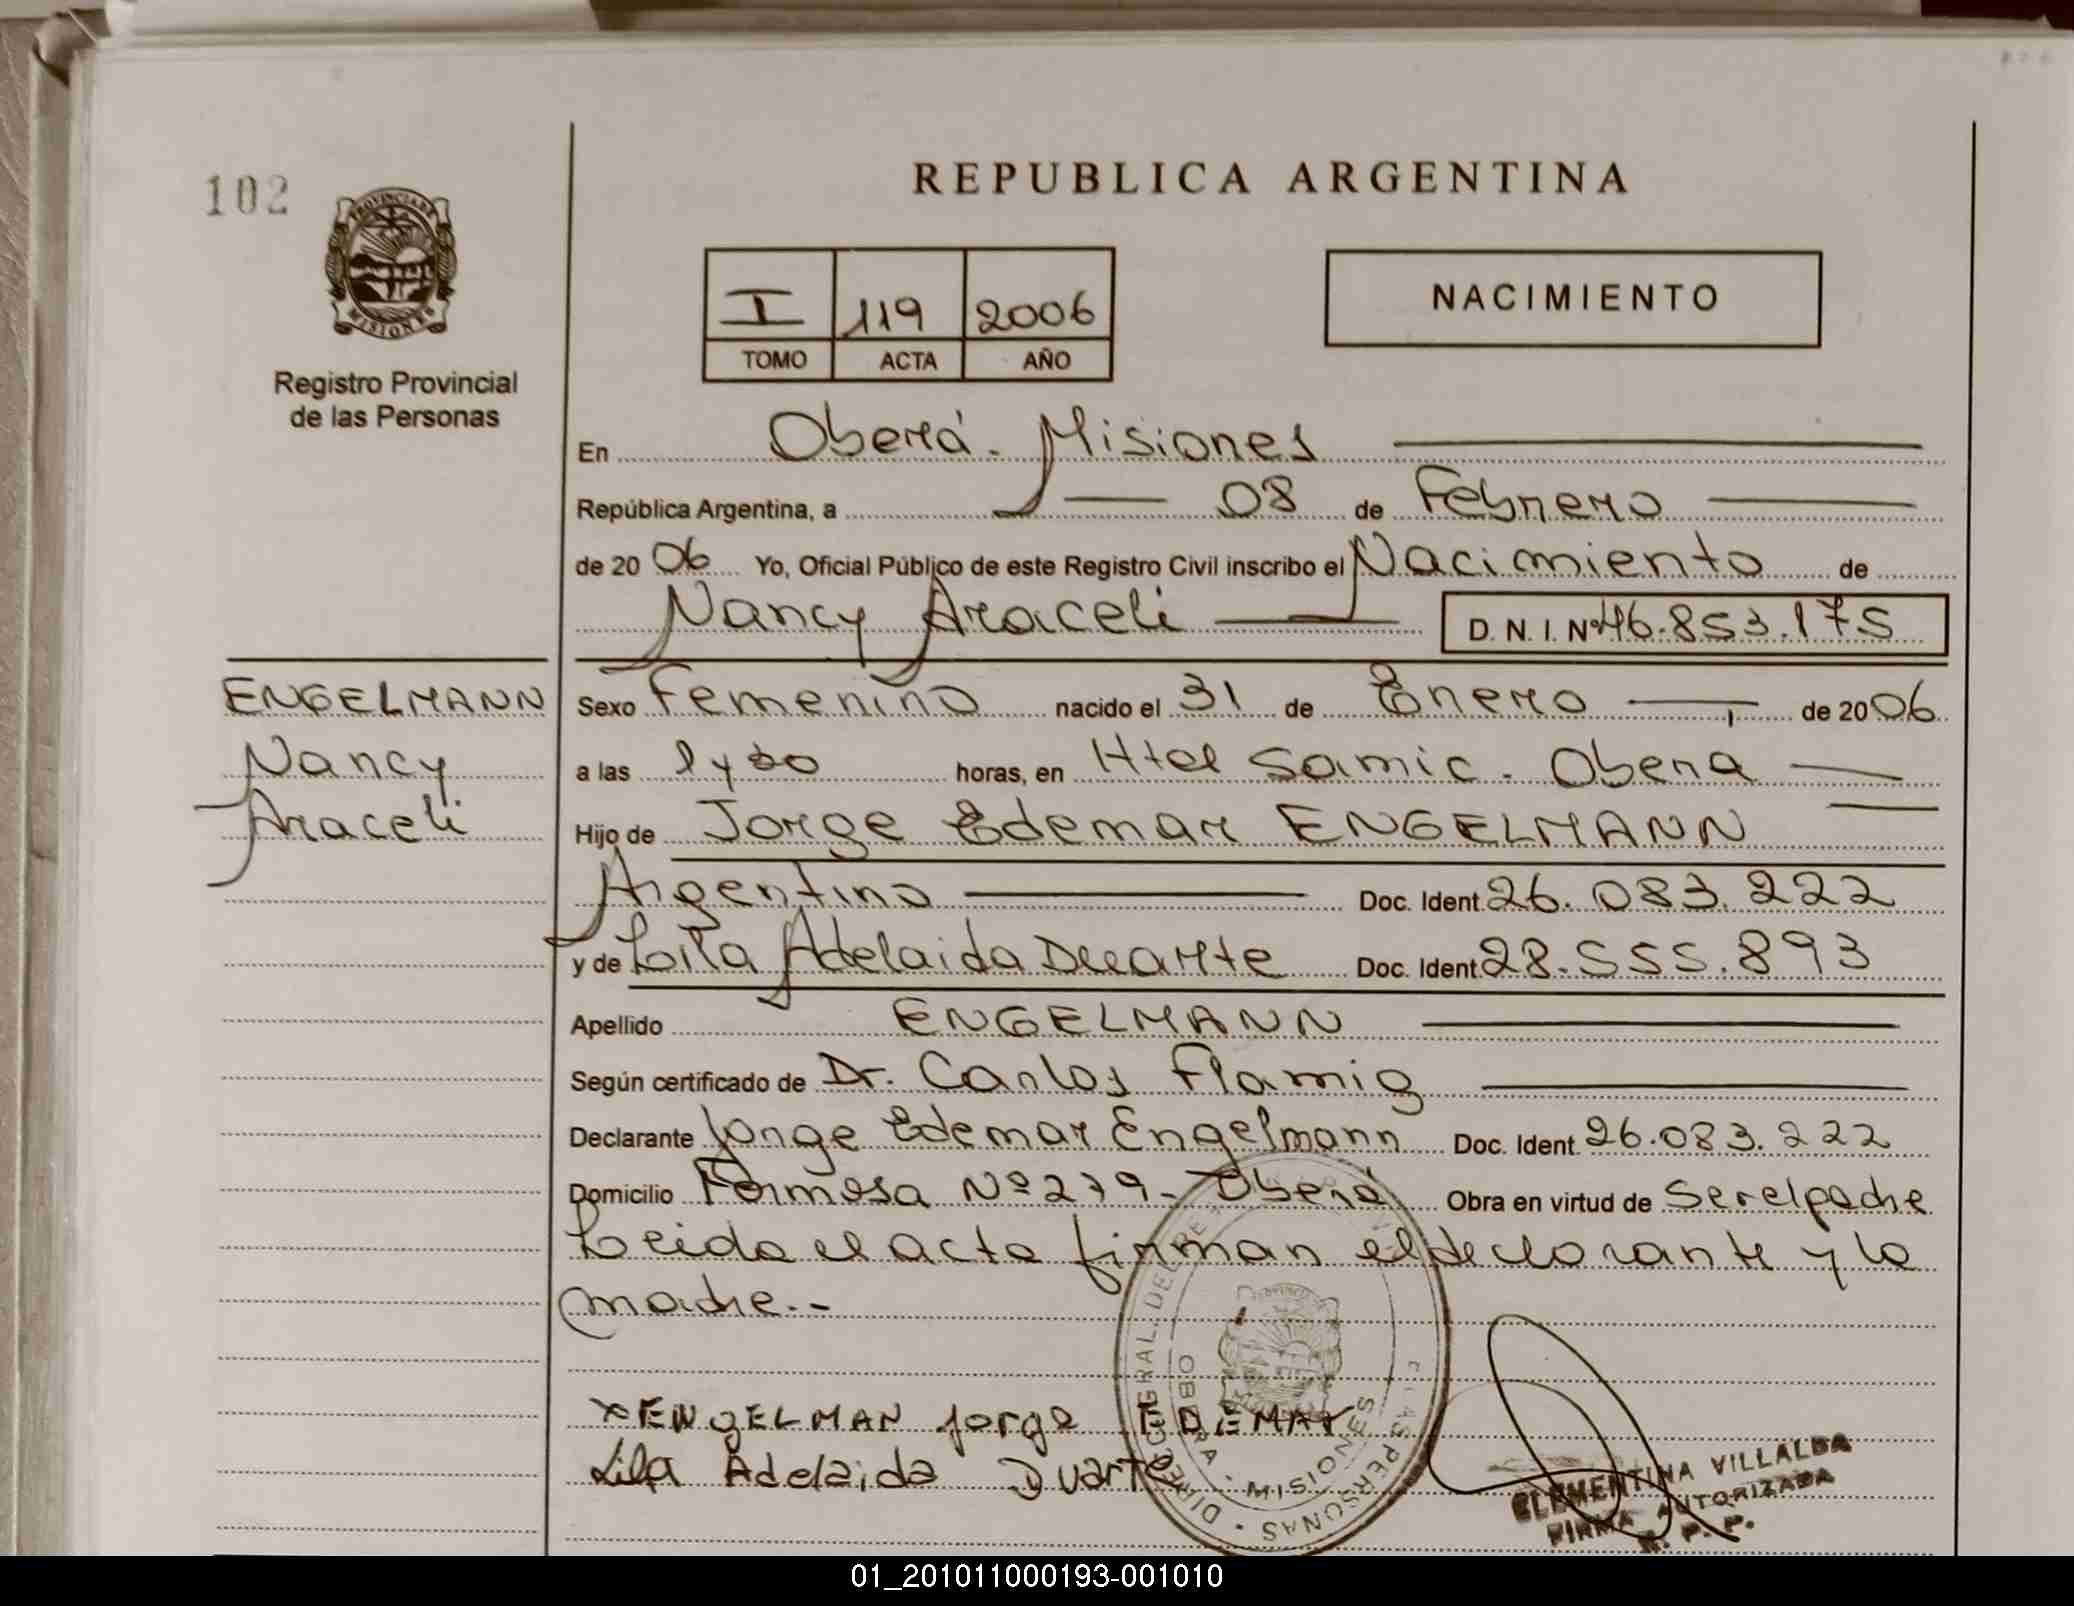 102
PROVINCIA DE
MISIONES
Registro Provincial
de las Personas
REPUBLICA ARGENTINA
I 119 2006
TOMO ACTA AÑO
NACIMIENTO
En Oberá - Misiones
República Argentina, a 08 de Febrero
de 2006 Yo, Oficial Público de este Registro Civil inscribo el Nacimiento de
Nancy Araceli D. N. I. Nº 46.853.175
ENGELMANN
Nancy
Araceli
Sexo Femenino nacido el 31 de Enero de 2006
a las 1 y 30 horas, en Htal Samic - Obera
Hijo de Jorge Edemar ENGELMANN
Argentino Doc. Ident. 26.083.222
y de Lila Adelaida Duarte Doc. Ident. 28.555.893
Apellido ENGELMANN
Según certificado de Dr. Carlos Flamig
Declarante Jorge Edemar Engelmann Doc. Ident. 26.083.222
Domicilio Formosa Nº 279 - Oberá Obra en virtud de Ser el padre
Leida el acta firman el declarante y la
madre.-
x ENgELMAN Jorge EDEMAR
Lila Adelaida Duarte
OBERA - MISIONES
CLEMENTINA VILLALBA
FIRMA AUTORIZADA
R. P. P.
01_201011000193-001010